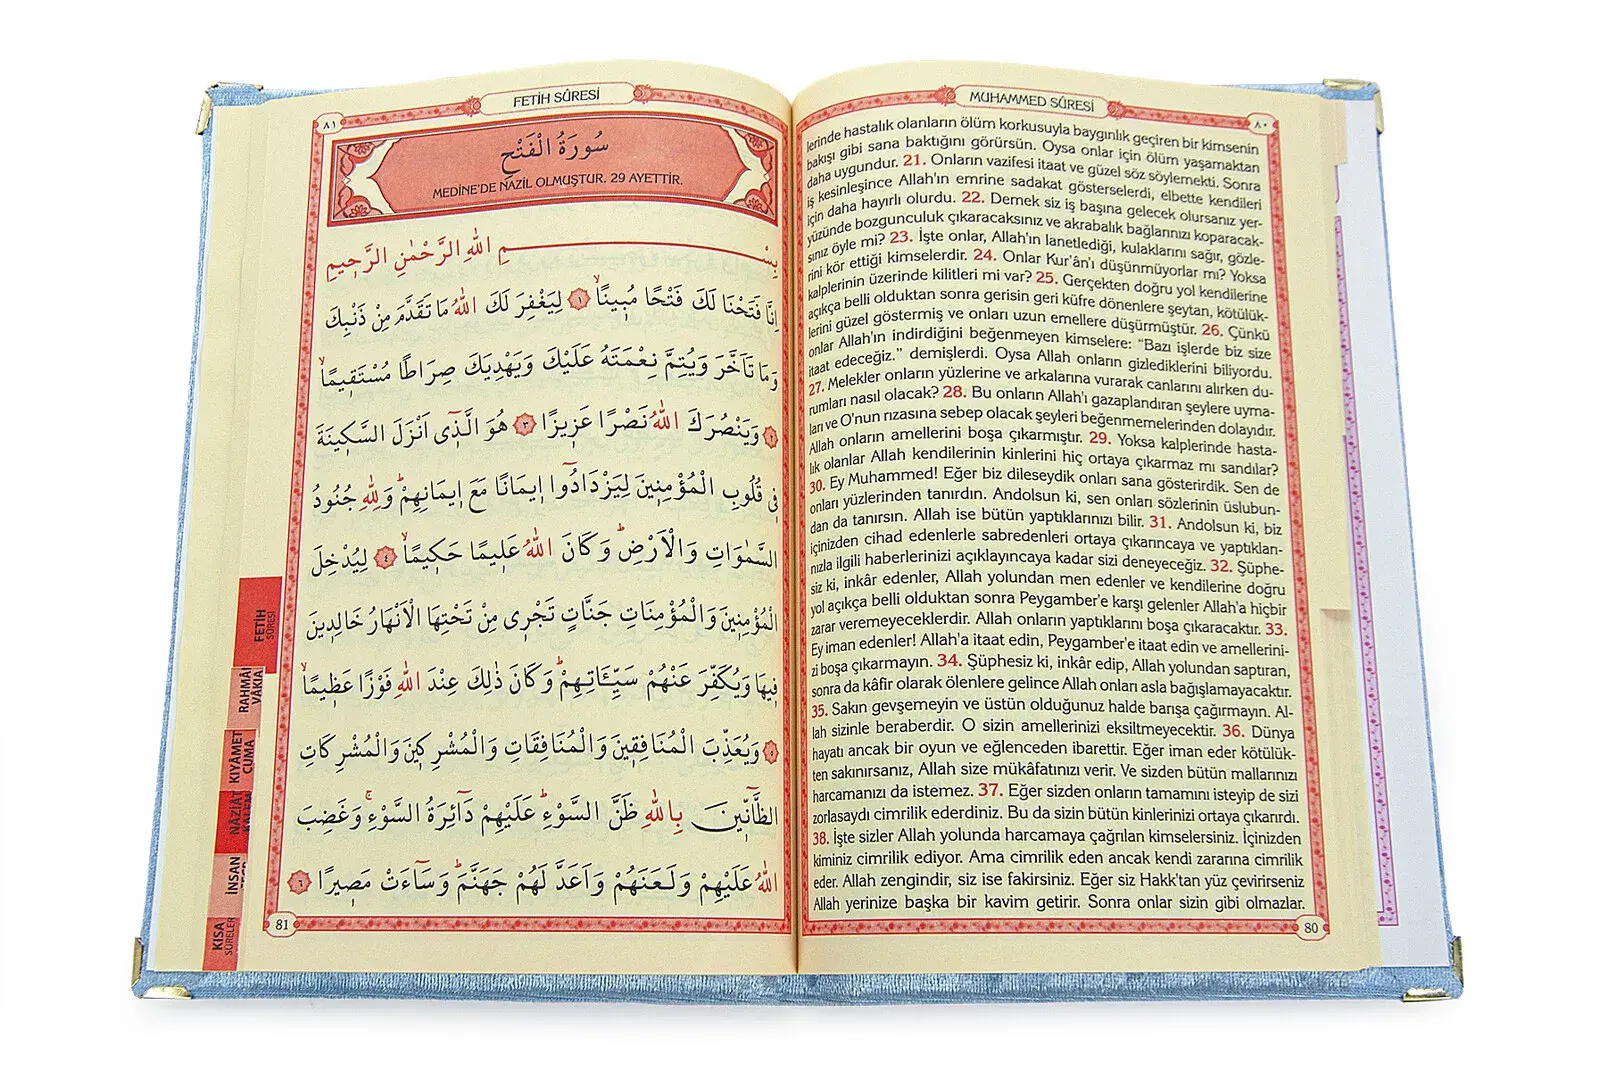 MUHAMMED SÛRESİ
٨٠
lerinde hastalık olanların ölüm korkusuyla baygınlık geçiren bir kimsenin
bakışı gibi sana baktığını görürsün. Oysa onlar için ölüm yaşamaktan
daha uygundur. 21. Onların vazifesi itaat ve güzel söz söylemekti. Sonra
iş kesinleşince Allah'ın emrine sadakat gösterselerdi, elbette kendileri
için daha hayırlı olurdu. 22. Demek siz iş başına gelecek olursanız yer-
yüzünde bozgunculuk çıkaracaksınız ve akrabalık bağlarınızı koparacak-
sınız öyle mi? 23. İşte onlar, Allah'ın lanetlediği, kulaklarını sağır, gözle-
rini kör ettiği kimselerdir. 24. Onlar Kur'ân'ı düşünmüyorlar mı? Yoksa
kalplerinin üzerinde kilitleri mi var? 25. Gerçekten doğru yol kendilerine
açıkça belli olduktan sonra gerisin geri küfre dönenlere şeytan, kötülük-
lerini güzel göstermiş ve onları uzun emellere düşürmüştür. 26. Çünkü
onlar Allah'ın indirdiğini beğenmeyen kimselere: "Bazı işlerde biz size
itaat edeceğiz." demişlerdi. Oysa Allah onların gizlediklerini biliyordu.
27. Melekler onların yüzlerine ve arkalarına vurarak canlarını alırken du-
rumları nasıl olacak? 28. Bu onların Allah'ı gazaplandıran şeylere uyma-
ları ve O'nun rızasına sebep olacak şeyleri beğenmemelerinden dolayıdır.
Allah onların amellerini boşa çıkarmıştır. 29. Yoksa kalplerinde hasta-
lık olanlar Allah kendilerinin kinlerini hiç ortaya çıkarmaz mı sandılar?
30. Ey Muhammed! Eğer biz dileseydik onları sana gösterirdik. Sen de
onları yüzlerinden tanırdın. Andolsun ki, sen onları sözlerinin üslubun-
dan da tanırsın. Allah ise bütün yaptıklarınızı bilir. 31. Andolsun ki, biz
içinizden cihad edenlerle sabredenleri ortaya çıkarıncaya ve yaptıkları-
nızla ilgili haberlerinizi açıklayıncaya kadar sizi deneyeceğiz. 32. Şüphe-
siz ki, inkâr edenler, Allah yolundan men edenler ve kendilerine doğru
yol açıkça belli olduktan sonra Peygamber'e karşı gelenler Allah'a hiçbir
zarar veremeyeceklerdir. Allah onların yaptıklarını boşa çıkaracaktır. 33.
Ey iman edenler! Allah'a itaat edin, Peygamber'e itaat edin ve amellerini-
zi boşa çıkarmayın. 34. Şüphesiz ki, inkâr edip, Allah yolundan saptıran,
sonra da kâfir olarak ölenlere gelince Allah onları asla bağışlamayacaktır.
35. Sakın gevşemeyin ve üstün olduğunuz halde barışa çağırmayın. Al-
lah sizinle beraberdir. O sizin amellerinizi eksiltmeyecektir. 36. Dünya
hayatı ancak bir oyun ve eğlenceden ibarettir. Eğer iman eder kötülük-
ten sakınırsanız, Allah size mükâfatınızı verir. Ve sizden bütün mallarınızı
harcamanızı da istemez. 37. Eğer sizden onların tamamını isteyip de sizi
zorlasaydı cimrilik ederdiniz. Bu da sizin bütün kinlerinizi ortaya çıkarırdı.
38. İşte sizler Allah yolunda harcamaya çağrılan kimselersiniz. İçinizden
kiminiz cimrilik ediyor. Ama cimrilik eden ancak kendi zararına cimrilik
eder. Allah zengindir, siz ise fakirsiniz. Eğer siz Hakk'tan yüz çevirirseniz
Allah yerinize başka bir kavim getirir. Sonra onlar sizin gibi olmazlar.
80
FETİH SÛRESİ
٨١
سُورَةُ الْفَتْحِ
MEDİNE'DE NAZİL OLMUŞTUR. 29 AYETTİR.
بِسْمِ اللّٰهِ الرَّحْمٰنِ الرَّح۪يمِ
اِنَّا فَتَحْنَا لَكَ فَتْحًا مُب۪ينًاۙ ﴿١﴾ لِيَغْفِرَ لَكَ اللّٰهُ مَا تَقَدَّمَ مِنْ ذَنْبِكَ
وَمَا تَاَخَّرَ وَيُتِمَّ نِعْمَتَهُ عَلَيْكَ وَيَهْدِيَكَ صِرَاطًا مُسْتَق۪يمًاۙ
﴿٢﴾ وَيَنْصُرَكَ اللّٰهُ نَصْرًا عَز۪يزًا ﴿٣﴾ هُوَ الَّذ۪ٓي اَنْزَلَ السَّك۪ينَةَ
ف۪ي قُلُوبِ الْمُؤْمِن۪ينَ لِيَزْدَادُٓوا ا۪يمَانًا مَعَ ا۪يمَانِهِمْۜ وَلِلّٰهِ جُنُودُ
السَّمٰوَاتِ وَالْاَرْضِۜ وَكَانَ اللّٰهُ عَل۪يمًا حَك۪يمًاۙ ﴿٤﴾ لِيُدْخِلَ
الْمُؤْمِن۪ينَ وَالْمُؤْمِنَاتِ جَنَّاتٍ تَجْر۪ي مِنْ تَحْتِهَا الْاَنْهَارُ خَالِد۪ينَ
ف۪يهَا وَيُكَفِّرَ عَنْهُمْ سَيِّـَٔاتِهِمْۜ وَكَانَ ذٰلِكَ عِنْدَ اللّٰهِ فَوْزًا عَظ۪يمًاۙ
﴿٥﴾ وَيُعَذِّبَ الْمُنَافِق۪ينَ وَالْمُنَافِقَاتِ وَالْمُشْرِك۪ينَ وَالْمُشْرِكَاتِ
الظَّٓانّ۪ينَ بِاللّٰهِ ظَنَّ السَّوْءِۜ عَلَيْهِمْ دَٓائِرَةُ السَّوْءِۚ وَغَضِبَ
اللّٰهُ عَلَيْهِمْ وَلَعَنَهُمْ وَاَعَدَّ لَهُمْ جَهَنَّمَۜ وَسَٓاءَتْ مَص۪يرًا ﴿٦﴾
81
FETİH
SÛRESİ
RAHMÂN
VÂKIA
KIYÂMET
CUMA
NAZİÂT
İNSAN
KISA
SÛRELER